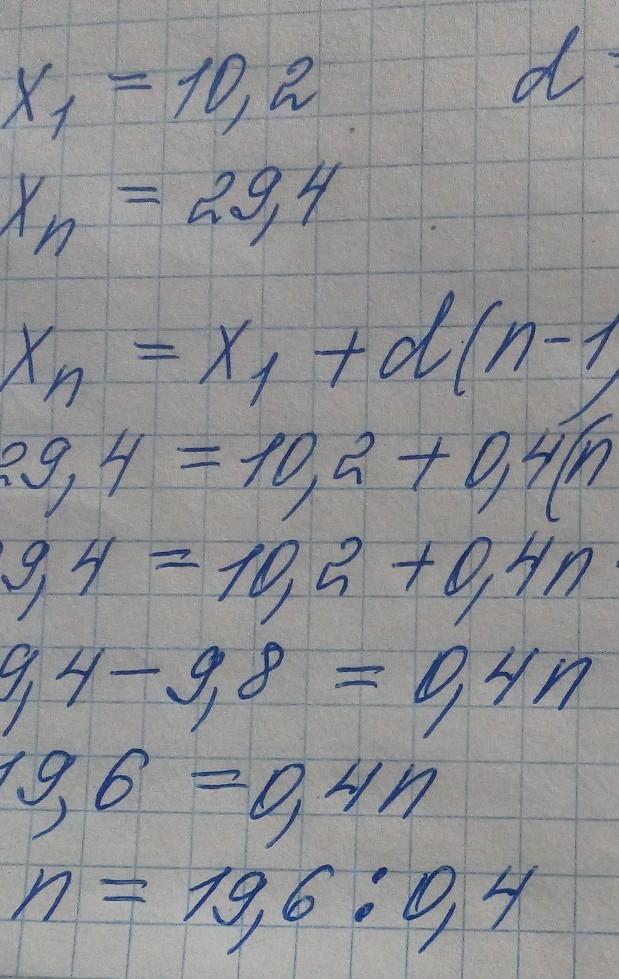 x₁ = 10,2 d =
xₙ = 29,4
xₙ = x₁ + d(n-1)
29,4 = 10,2 + 0,4(n
9,4 = 10,2 + 0,4n -
9,4 - 9,8 = 0,4n
19,6 = 0,4n
n = 19,6 : 0,4